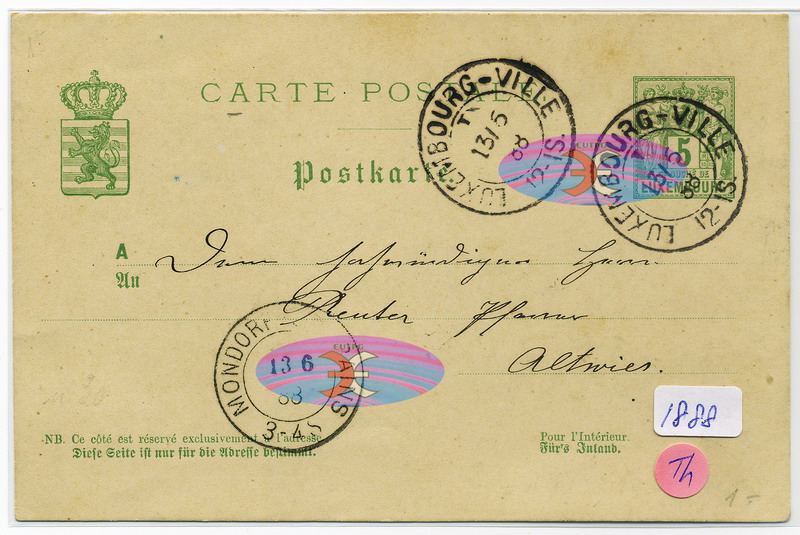 CARTE POSTALE
Postkarte
LUXEMBOURG-VILLE
13/5
12-1S.
LUXEMBOURG-VILLE
13/5
12-1S.
5
LUXEMBOURG
EUTRO
A
An
Dem Herrn
Reuter Pfarrer
Altwies.
MONDORF BAINS
13 6
88
3-4S
EUTRO
1888
Th
NB. Ce côté est réservé exclusivement à l'adresse
Diese Seite ist nur für die Adresse bestimmt.
Pour l'Intérieur.
Für's Inland.